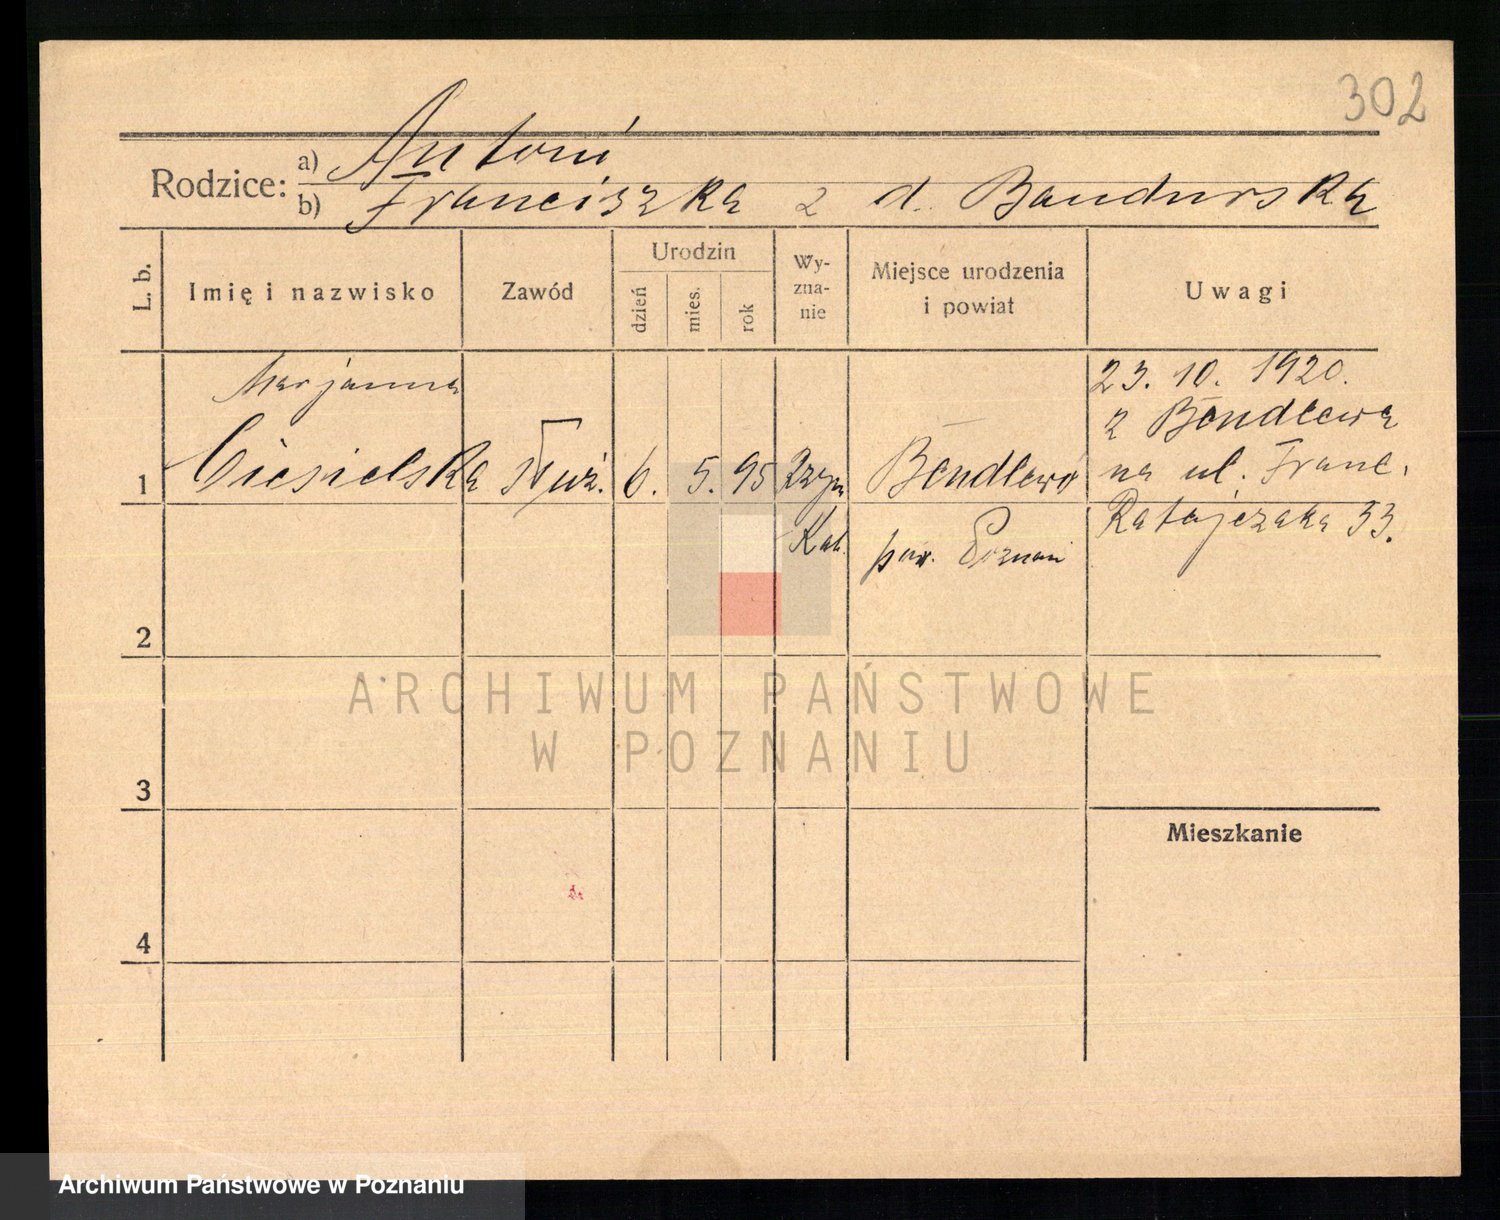 302
Rodzice:
a) Antoni
b) Franciszka z d. Bandurska
L. b.
Imię i nazwisko
Zawód
Urodzin
dzień
mies.
rok
Wy-
zna-
nie
Miejsce urodzenia
i powiat
Uwagi
1
Marjanna
Ciesielska
służ.
6.
5.
95
Rzym
Kat.
Bendlewo
pow. Poznań
23. 10. 1920.
z Bendlewa
na ul. Franc.
Ratajczaka 33.
2
3
4
Mieszkanie
ARCHIWUM PAŃSTWOWE
W POZNANIU
Archiwum Państwowe w Poznaniu